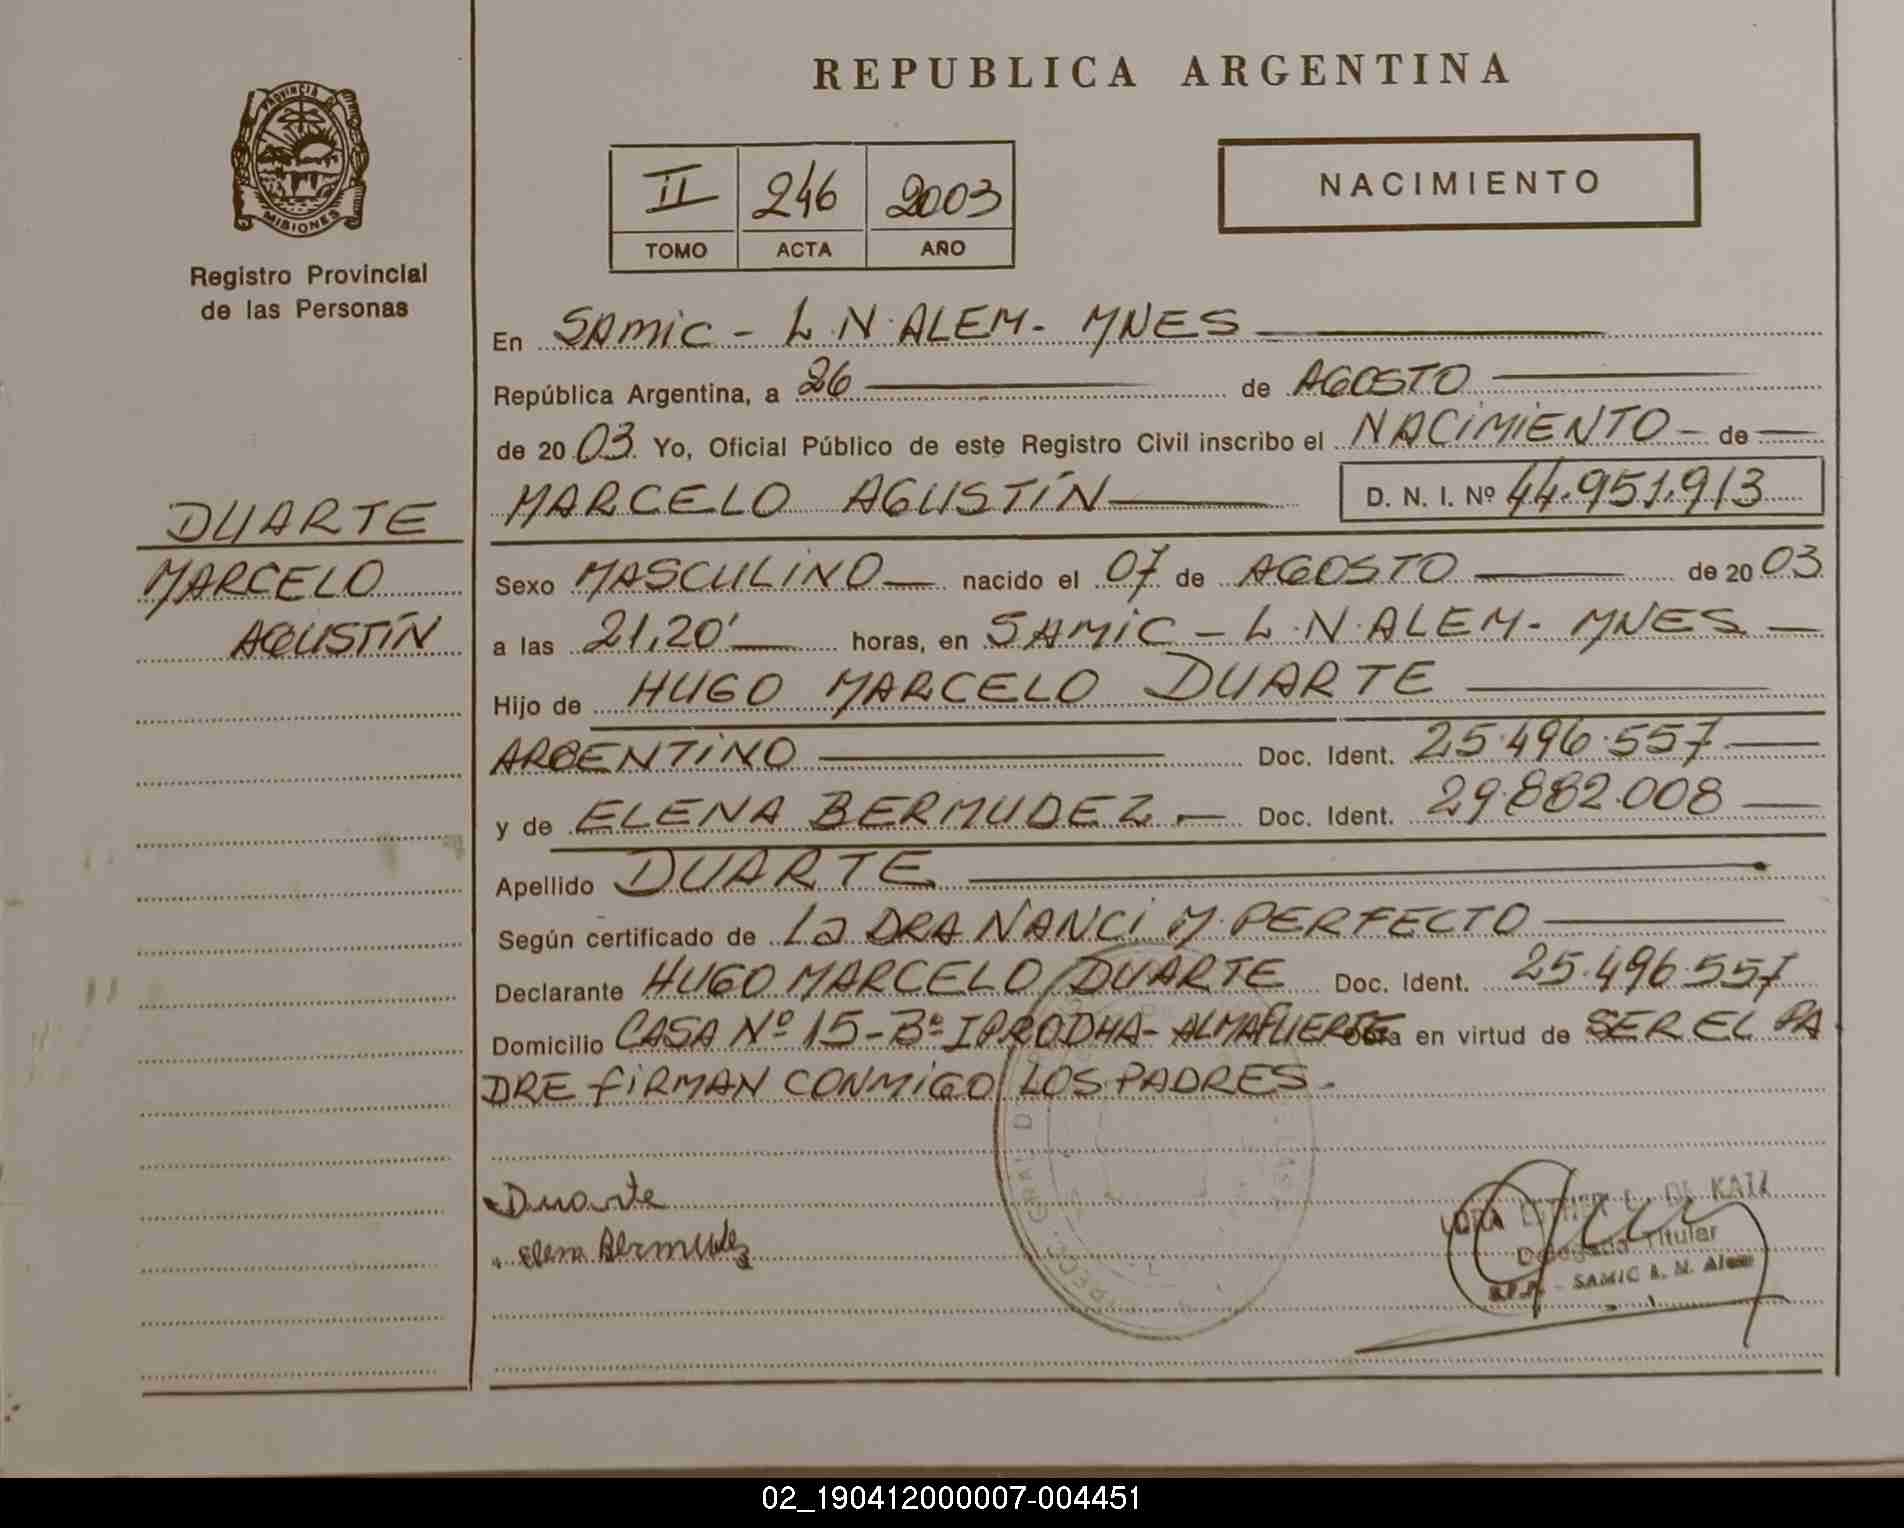 REPUBLICA ARGENTINA
PROVINCIA DE
MISIONES
Registro Provincial
de las Personas
II 246 2003
TOMO ACTA AÑO
NACIMIENTO
DUARTE
MARCELO
AGUSTÍN
En SAMIC - L.N.ALEM. MNES
República Argentina, a 26 de AGOSTO
de 2003. Yo, Oficial Público de este Registro Civil inscribo el NACIMIENTO - de
MARCELO AGUSTÍN D. N. I. Nº 44.951.913
Sexo MASCULINO nacido el 07 de AGOSTO de 2003
a las 21,20' horas, en SAMIC - L.N.ALEM. MNES -
Hijo de HUGO MARCELO DUARTE
ARGENTINO Doc. Ident. 25.496.557
y de ELENA BERMUDEZ.- Doc. Ident. 29.882.008
Apellido DUARTE
Según certificado de La DRA NANCI M. PERFECTO
Declarante HUGO MARCELO DUARTE Doc. Ident. 25.496.557
Domicilio CASA Nº 15-Bº IPRODHA- ALMAFUERTE Obra en virtud de SER EL PA
DRE FIRMAN CONMIGO LOS PADRES.
Duarte
Elena Bermudez
DE KATZ
Delegada Titular
R.P.P. - SAMIC L. N. Alem
02_190412000007-004451